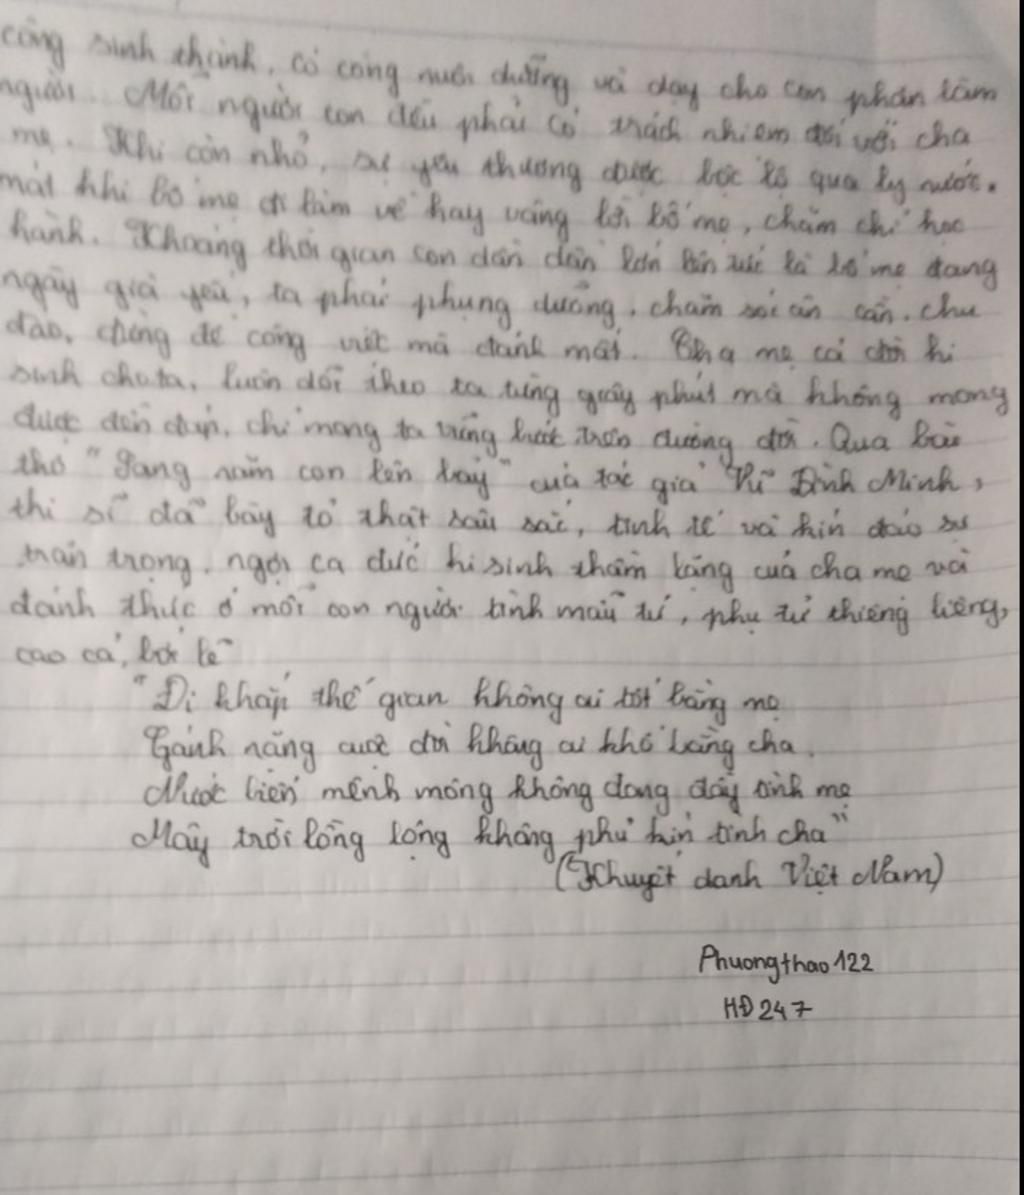 công sinh thành, có công nuôi dưỡng và dạy cho con phận làm
người. Mỗi người con đều phải có trách nhiệm đối với cha
mẹ. Khi còn nhỏ, sự yêu thương được bộc lộ qua ly nước
mát khi bố mẹ đi làm về hay vâng lời bố mẹ, chăm chỉ học
hành. Khoảng thời gian con dần dần lớn lên tức là bố mẹ đang
ngày già yếu, ta phải phụng dưỡng, chăm sóc ân cần, chu
đáo, đừng để công việc mà đánh mất. Cha mẹ cả đời hi
sinh cho ta, luôn dõi theo ta từng giây phút mà không mong
được đền đáp, chỉ mong ta vững bước trên đường đời. Qua bài
thơ "Sang năm con lên bảy" của tác giả Vũ Đình Minh,
thi sĩ đã bày tỏ thật sâu sắc, tinh tế và kín đáo sự
trân trọng, ngợi ca đức hi sinh thầm lặng của cha mẹ và
đánh thức ở mỗi con người tình mẫu tử, phụ tử thiêng liêng,
cao cả, bởi lẽ
"Đi khắp thế gian không ai tốt bằng mẹ
Gánh nặng cuộc đời không ai khổ bằng cha.
Nước biển mênh mông không đong đầy tình mẹ
Mây trời lồng lộng không phủ kín tình cha"
(Khuyết danh Việt Nam)
Phuongthao122
HĐ247